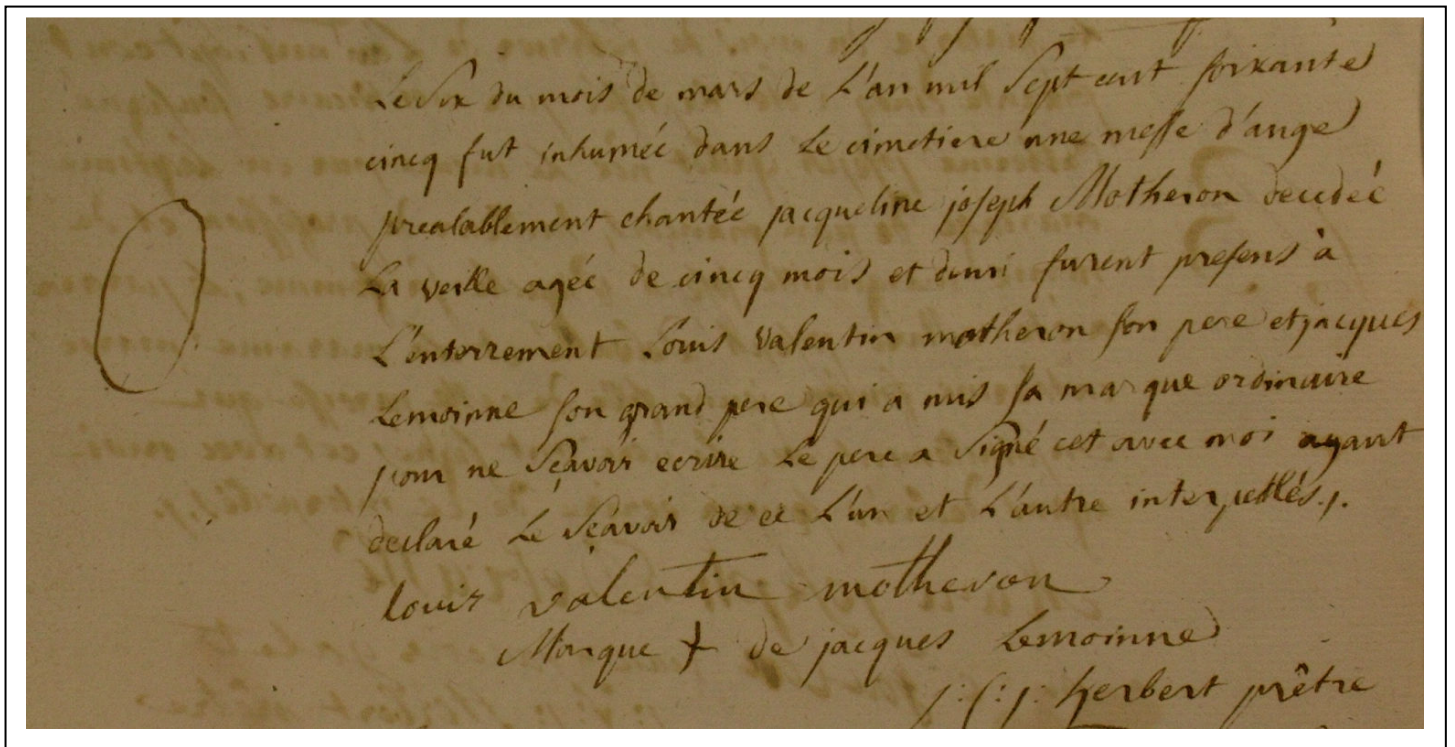 Le Six du mois de mars de L'an mil Sept cent soixante
cincq fut inhumée dans Le cimetiere une messe d'ange
prealablement chantée jacqueline joseph Motheron decedée
La veille agée de cincq mois et demi furent presens à
L'enterrement Louis Valentin motheron son pere et jacques
Lemoinne son grand pere qui a mis sa marque ordinaire
pour ne Sçavoir ecrire Le pere a Signé cet avec moi ayant
declaré Le Sçavoir de ce L'un et L'autre interpellés./.
louis valentin motheron
Marque + de jacques Lemoinne
herbert prêtre